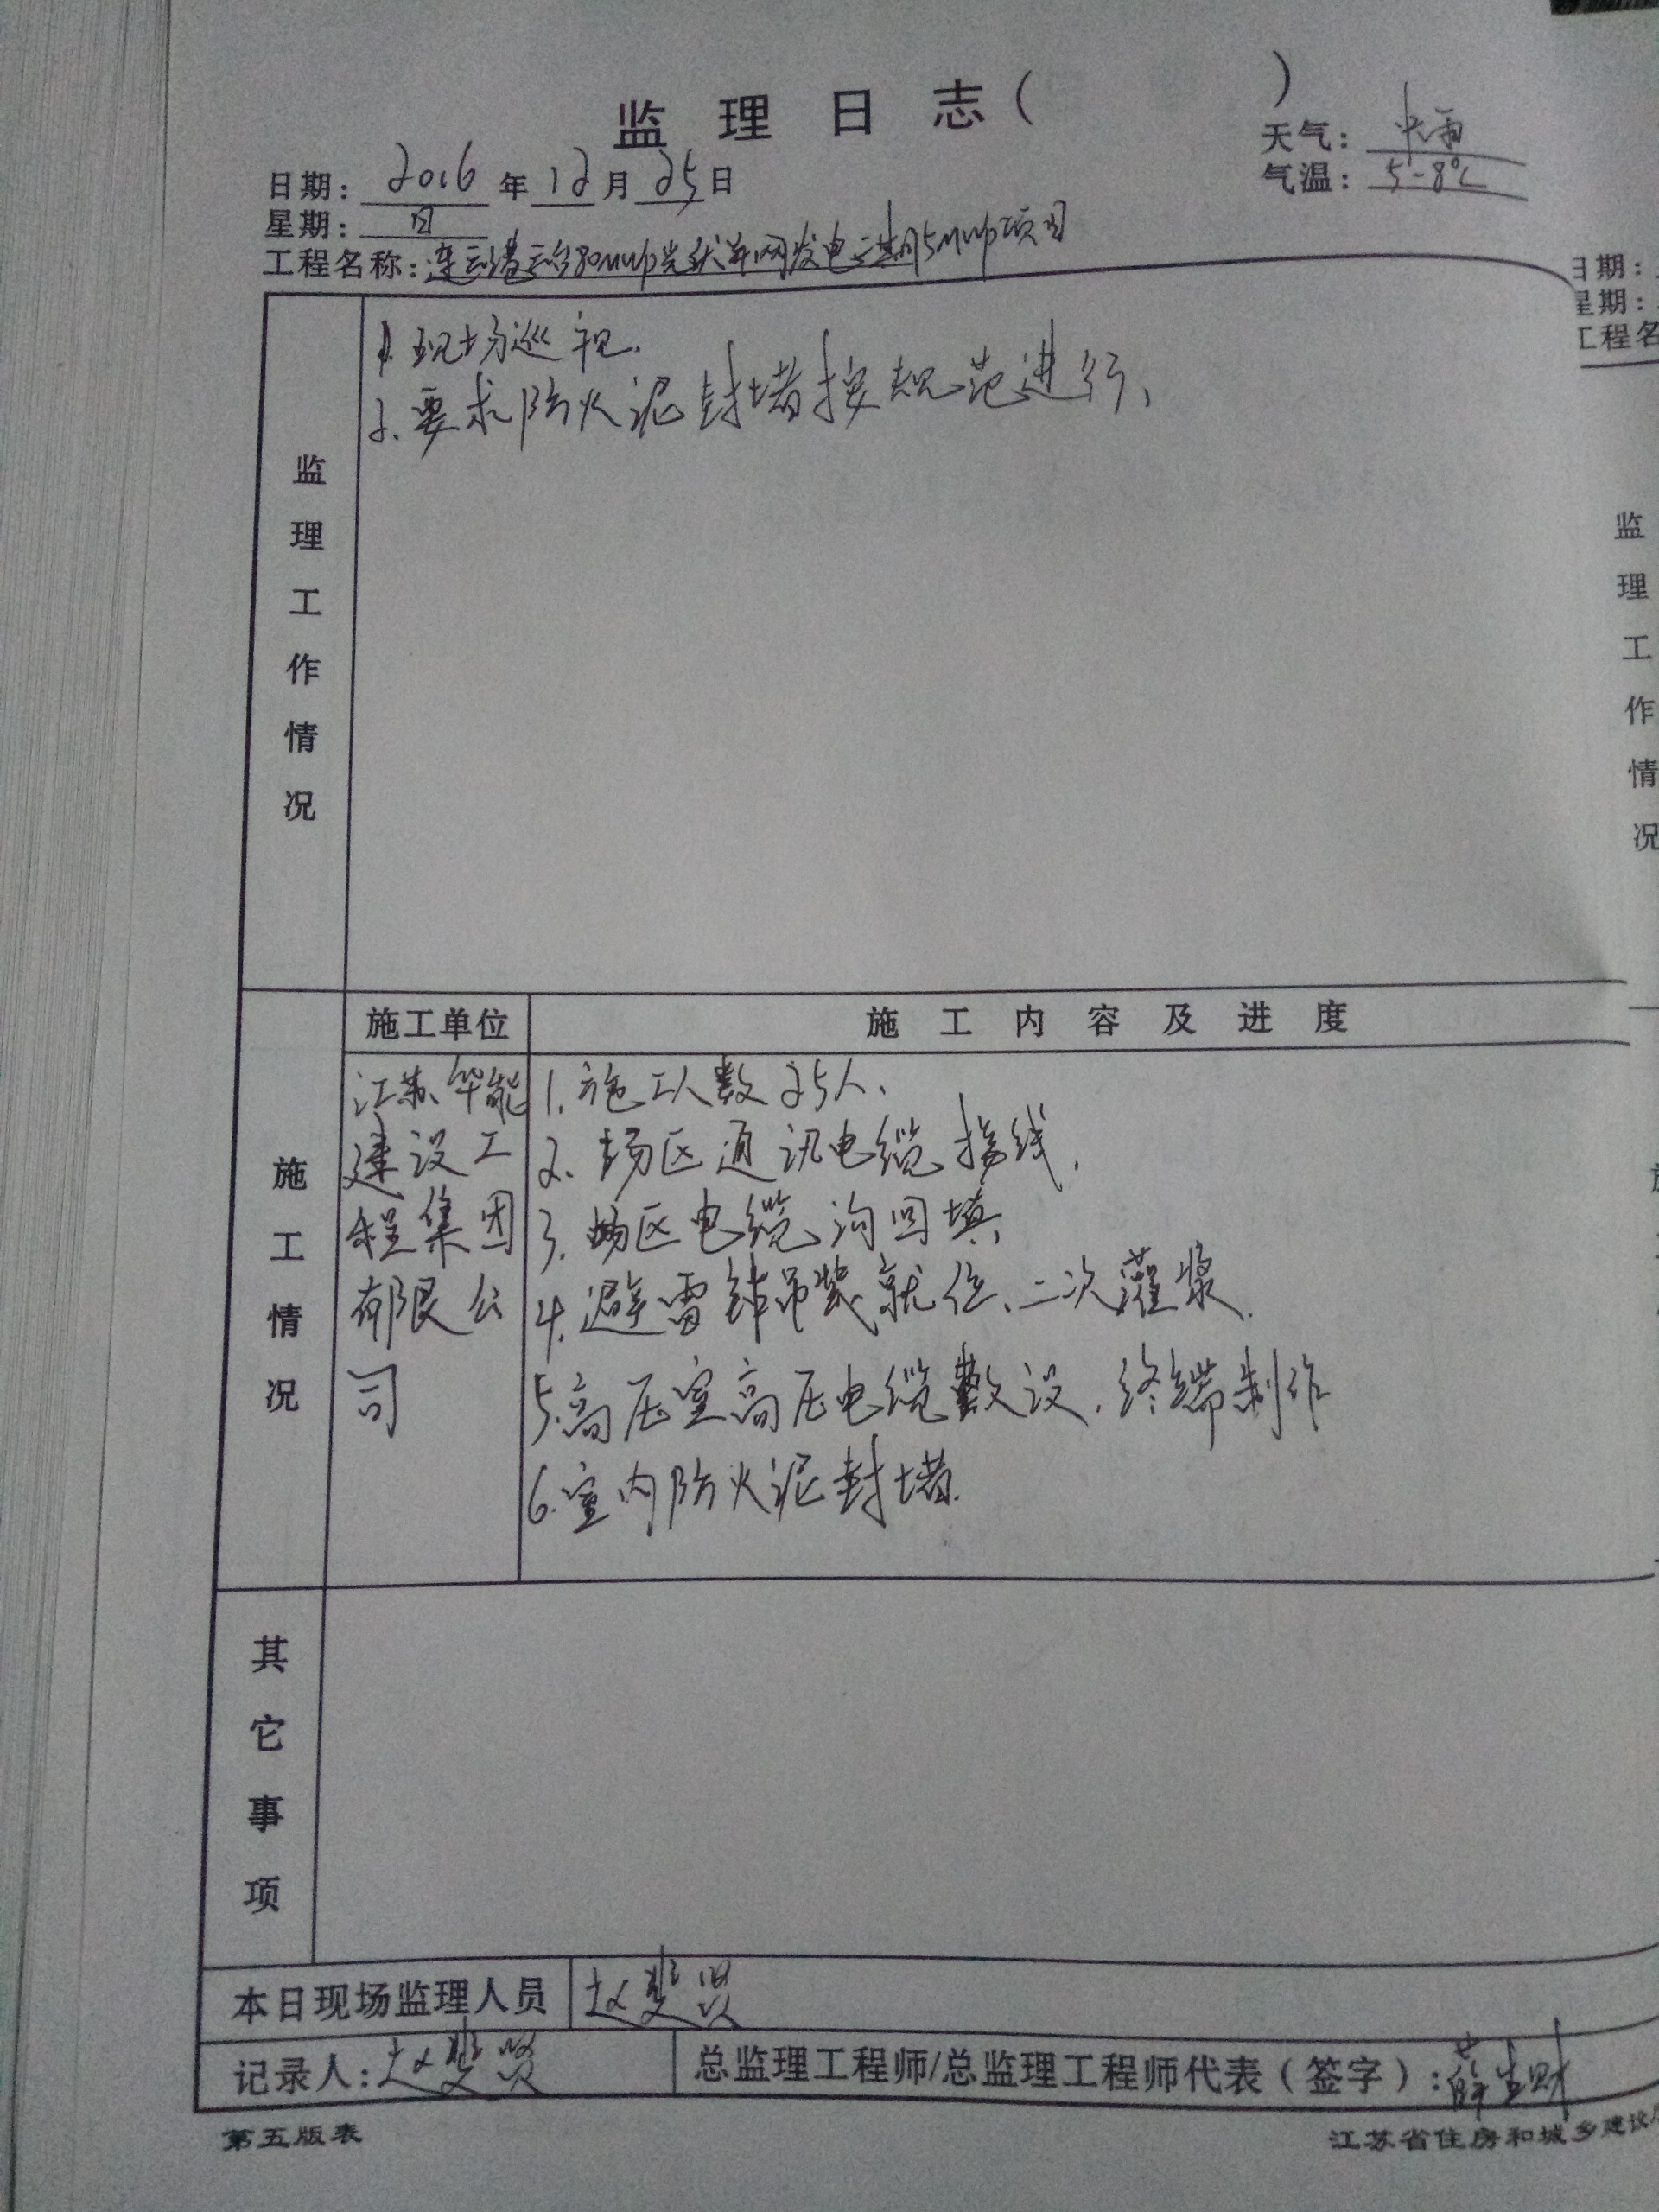 监理日志( )
天气:
日期: 2016 年 12 月 25 日
气温: 5-8℃
星期: 日
工程名称: 连云港云台30MWp光伏并网发电二期5MWp项目
监理工作情况
1. 现场巡视.
2. 要求防火泥封堵按规范进行、
施工单位
施工内容及进度
施工情况
江苏华能
建设工
程集团
有限公
司
1. 施工人数25人、
2. 场区通讯电缆接线.
3. 场区电缆沟回填
4. 避雷针吊装就位、二次灌浆.
5. 高压室高压电缆敷设.终端制作
6. 室内防火泥封堵.
其它事项
本日现场监理人员 赵
记录人: 赵
总监理工程师/总监理工程师代表(签字): 薛生财
第五版表
江苏省住房和城乡建设
日期:
星期:
工程名
监理工作情况